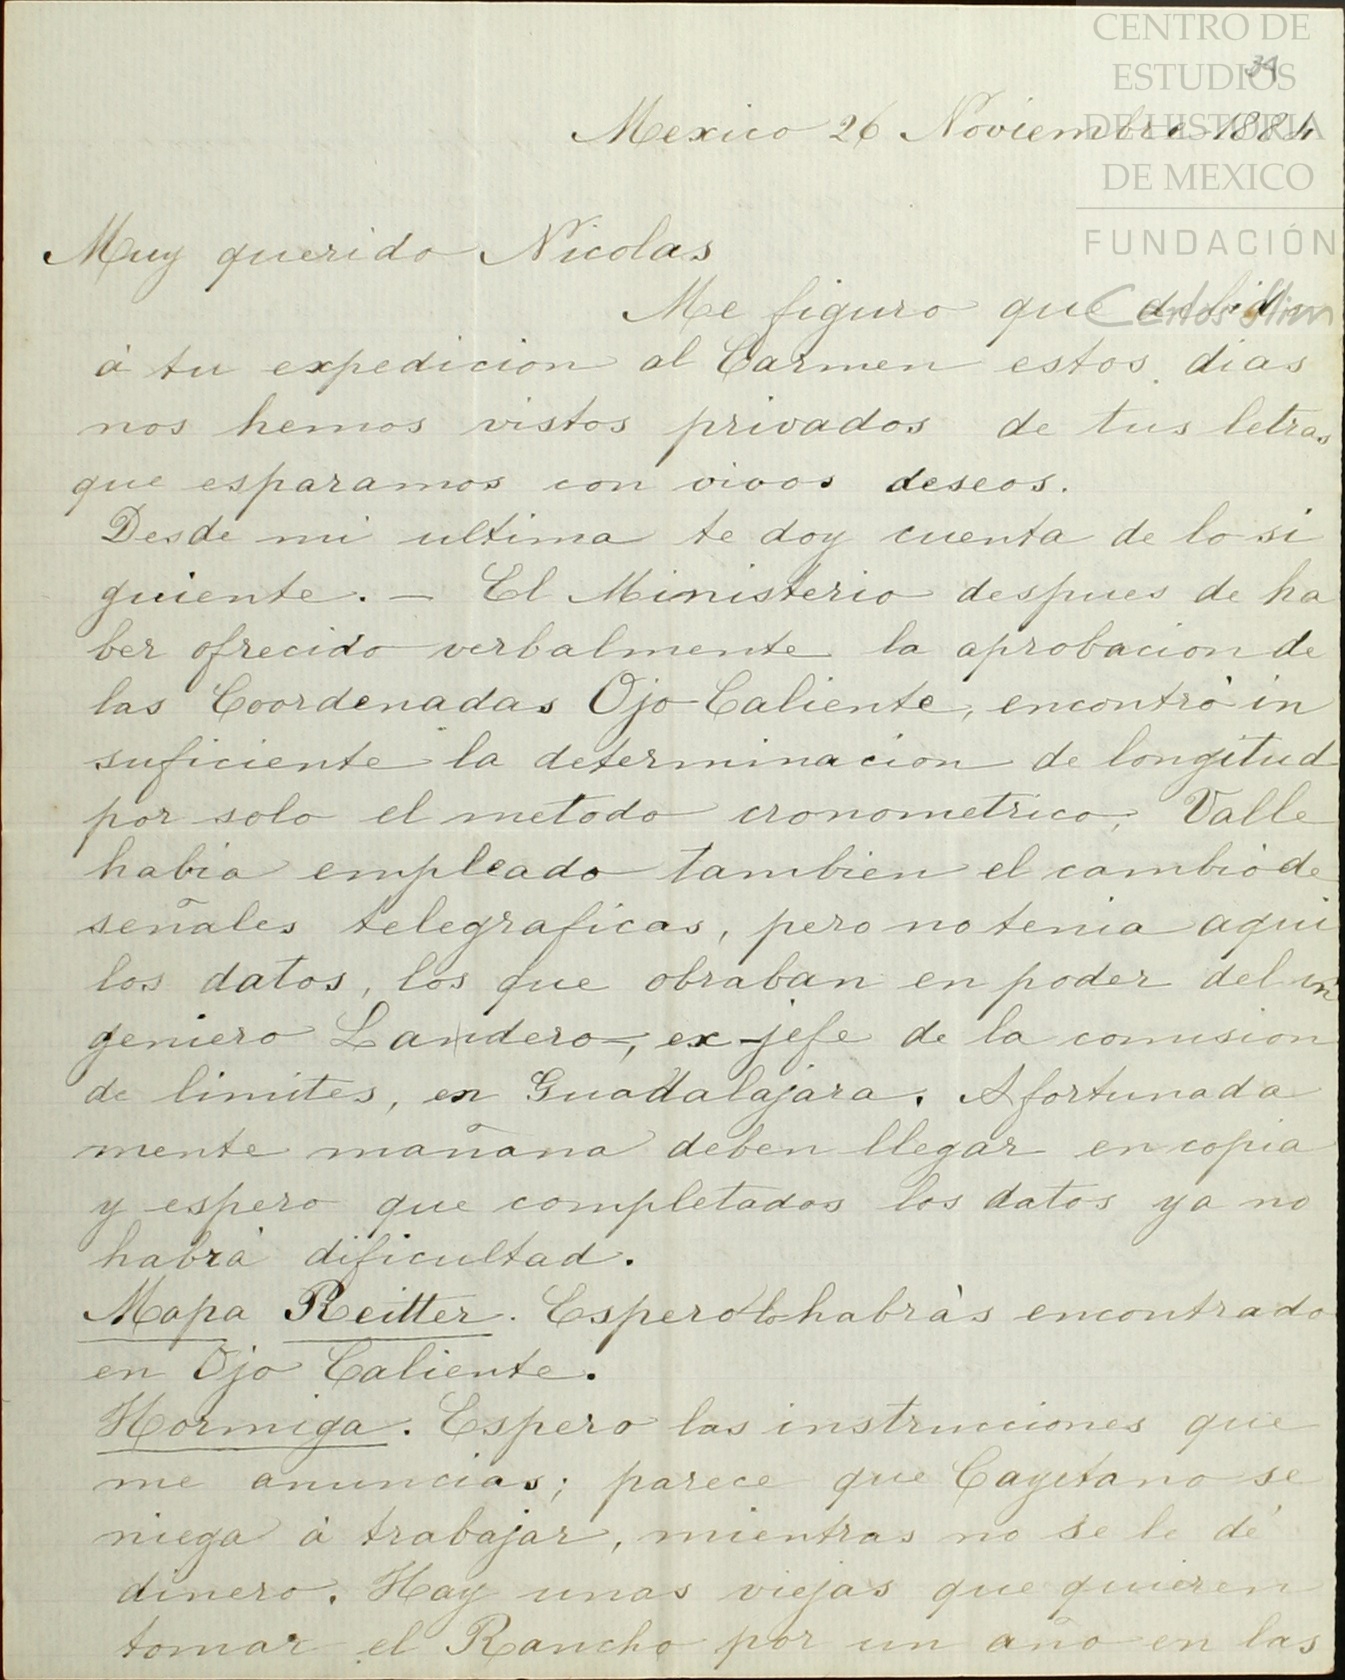 CENTRO DE
ESTUDIOS
DE HISTORIA
DE MEXICO
FUNDACIÓN
Carlos Slim
39
Mexico 26 Noviembre 1884
Muy querido Nicolas
Me figuro que debido
á tu expedicion al Carmen estos dias
nos hemos vistos privados de tus letras
que esparamos con vivos deseos.
Desde mi ultima te doy cuenta de lo si
guiente. — El Ministerio despues de ha
ber ofrecido verbalmente la aprobacion de
las Coordenadas Ojo Caliente, encontró in
suficiente la determinacion de longitud
por solo el metodo cronometrico, Valle
habia empleado tambien el cambio de
señales telegraficas, pero no tenia aqui
los datos, los que obraban en poder del in
geniero Landero, ex-jefe de la comision
de limites, en Guadalajara. Afortunada
mente mañana deben llegar en copia
y espero que completados los datos ya no
habrá dificultad.
Mapa Reitter. Espero lo habrás encontrado
en Ojo Caliente.
Hormiga. Espero las instrucciones que
me anuncias; parece que Cayetano se
niega á trabajar, mientras no se le dé
dinero. Hay unas viejas que quieren
tomar el Rancho por un año en las